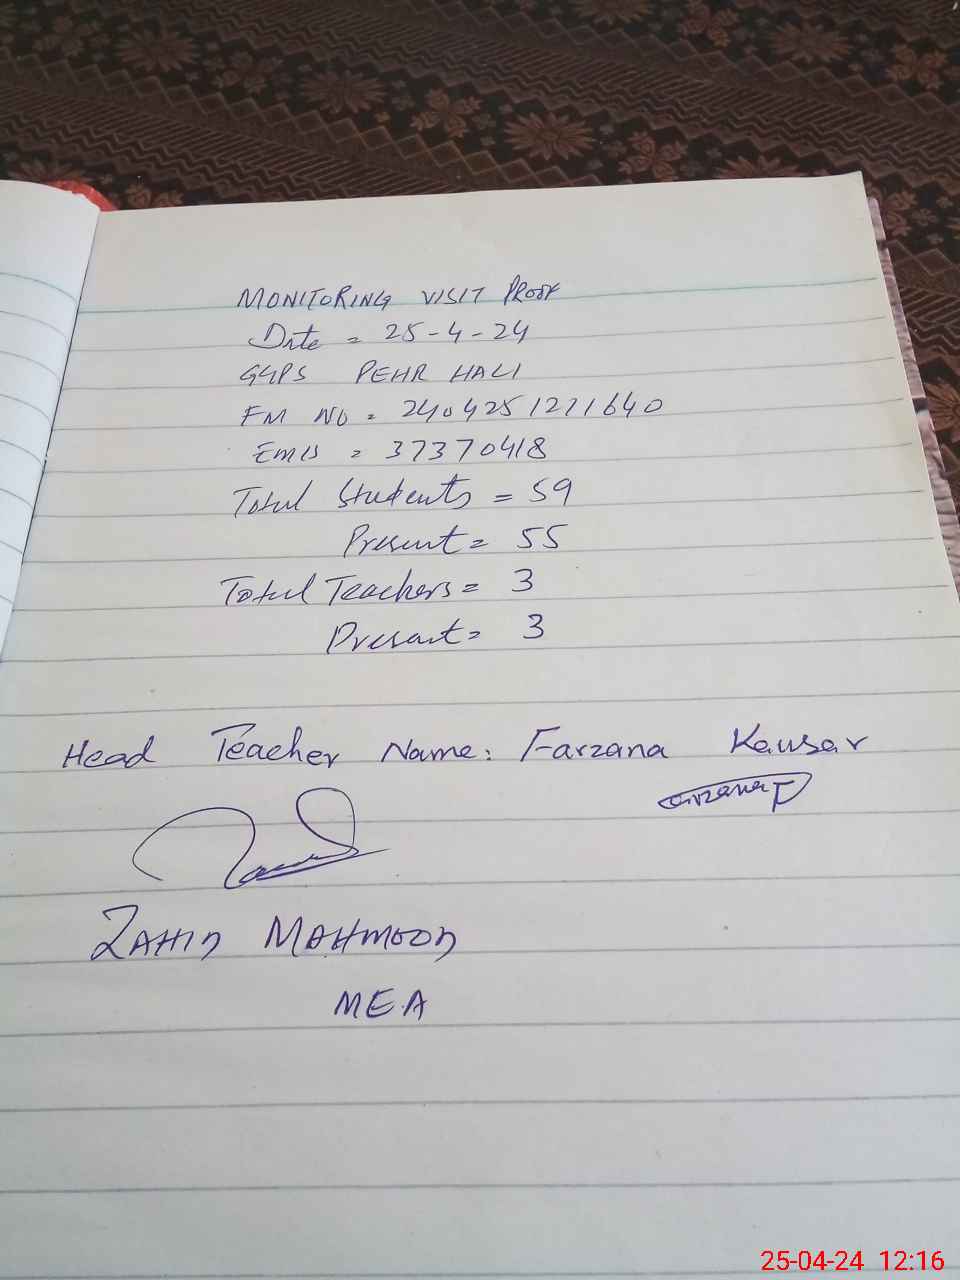 MONITORING VISIT PROOF
Date = 25-4-24
GGPS PEHR HALI
FM NO = 2404251211640
EMIS = 37370418
Total Students = 59
Present = 55
Total Teachers = 3
Present = 3
Head Teacher Name: Farzana Kausar
Farzana
MAHMOOD
MEA
25-04-24 12:16